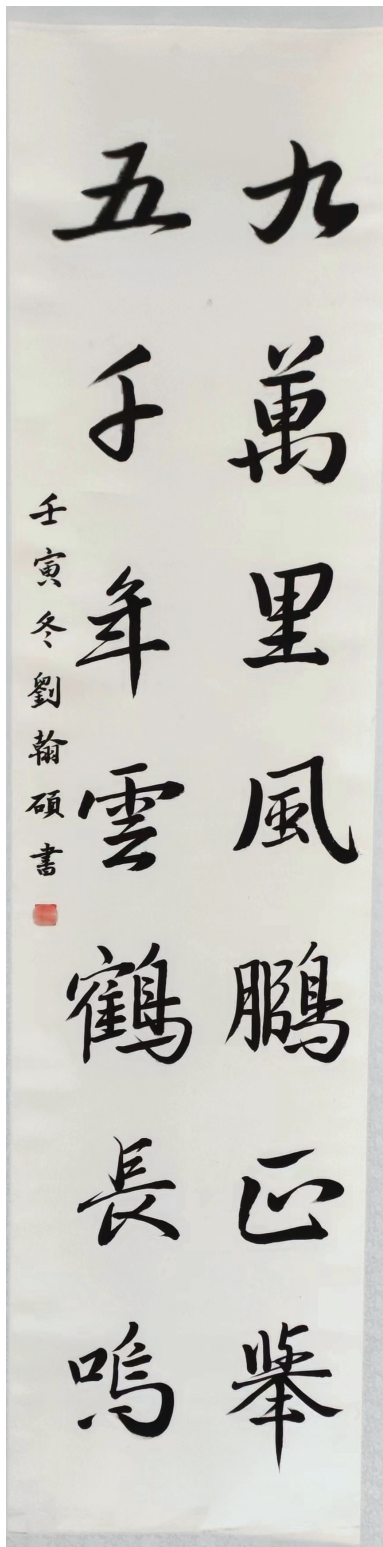 九萬里風鵬正舉
五千年雲鶴長鳴
壬寅冬劉翰碩書